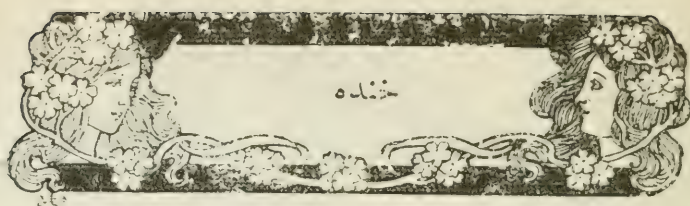 خنده